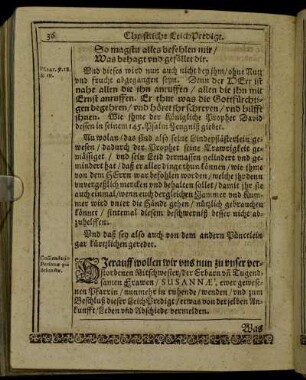 36 Christliche LeichPredigt.
So magstu alles befehlen mir/
Was behagt vnd gefället dir.
Vnd dieses wird nun auch nicht bey ihm/ohne Nutz
vnd frucht abgegangen seyn. Denn der HErr ist
nahe allen die ihn anruffen / allen die ihn mit
Ernst anruffen. Er thut was die Gottfürchti-
gen begehren/vnd höret ihr schreyen/vnd hilfft
ihnen. Wie ihme der Königliche Prophet David
dessen in seinem 145. Psalm Zeugniß giebet.
Nu wolan/das sind also seine Linderpflästerlein ge-
wesen/ dadurch der Prophet seine Trawrigkeit ge-
mässiget / vnd sein Leid dermassen gelindert vnd ge-
mindert hat/ daß er aller dinge thun können/wie ihme
von dem HErrn war befohlen worden/ welche ihr
vnvergeßlich mercken vnd behalten sollet/ damit ihr sie
auch einmal/wenn euch dergleichen Jammer vnd Kum-
mer wird vnter die Hände gehen/ nützlich gebrauchen
könnet / sintemal diesem beschwerniß besser nicht ab-
zuhelffen.
Vnd daß sey also auch von dem andern Pünctlein
gar kürtzlichen geredet.
HJerauff wollen wir vns nun zu vnser ver-
storbenen Mitschwester/ der Erbarn vñ Tugend-
samen Frawen/ SUSANNÆ, ewer gewese-
nen Pfarrin/ nunmehr in ruhende/wenden/ vnd zum
Beschluß dieser LeichPredigt/etwas von der selben An-
kunfft/Leben vnd Abschiede vermelden.
Was